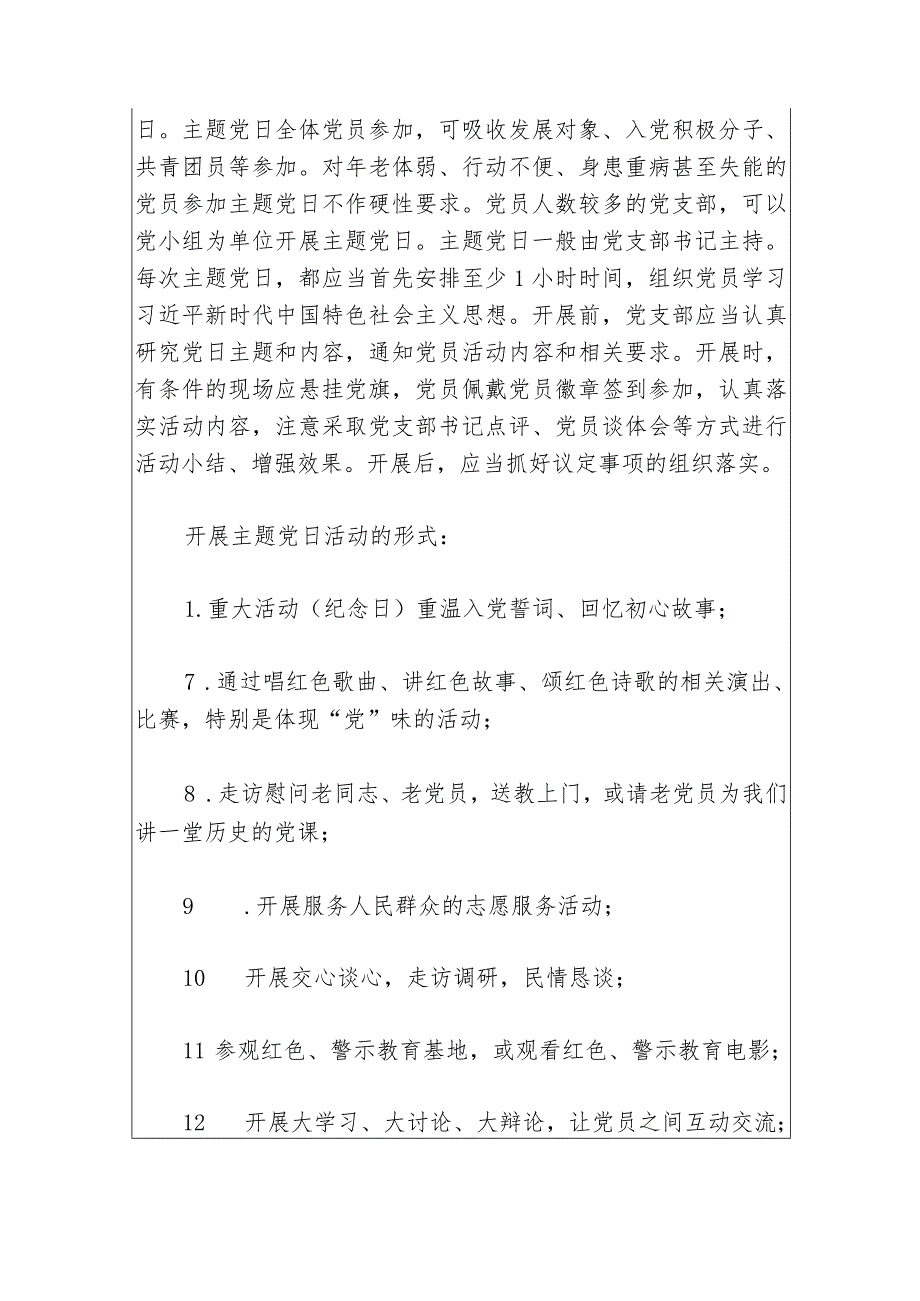 日。主题党日全体党员参加，可吸收发展对象、入党积极分子、
共青团员等参加。对年老体弱、行动不便、身患重病甚至失能的
党员参加主题党日不作硬性要求。党员人数较多的党支部，可以
党小组为单位开展主题党日。主题党日一般由党支部书记主持。
每次主题党日，都应当首先安排至少1小时时间，组织党员学习
习近平新时代中国特色社会主义思想。开展前，党支部应当认真
研究党日主题和内容，通知党员活动内容和相关要求。开展时，
有条件的现场应悬挂党旗，党员佩戴党员徽章签到参加，认真落
实活动内容，注意采取党支部书记点评、党员谈体会等方式进行
活动小结、增强效果。开展后，应当抓好议定事项的组织落实。
开展主题党日活动的形式：
1.重大活动（纪念日）重温入党誓词、回忆初心故事；
7 .通过唱红色歌曲、讲红色故事、颂红色诗歌的相关演出、
比赛，特别是体现“党”味的活动；
8 .走访慰问老同志、老党员，送教上门，或请老党员为我们
讲一堂历史的党课；
9 .开展服务人民群众的志愿服务活动；
10 开展交心谈心，走访调研，民情恳谈；
11 参观红色、警示教育基地，或观看红色、警示教育电影；
12 开展大学习、大讨论、大辩论，让党员之间互动交流；